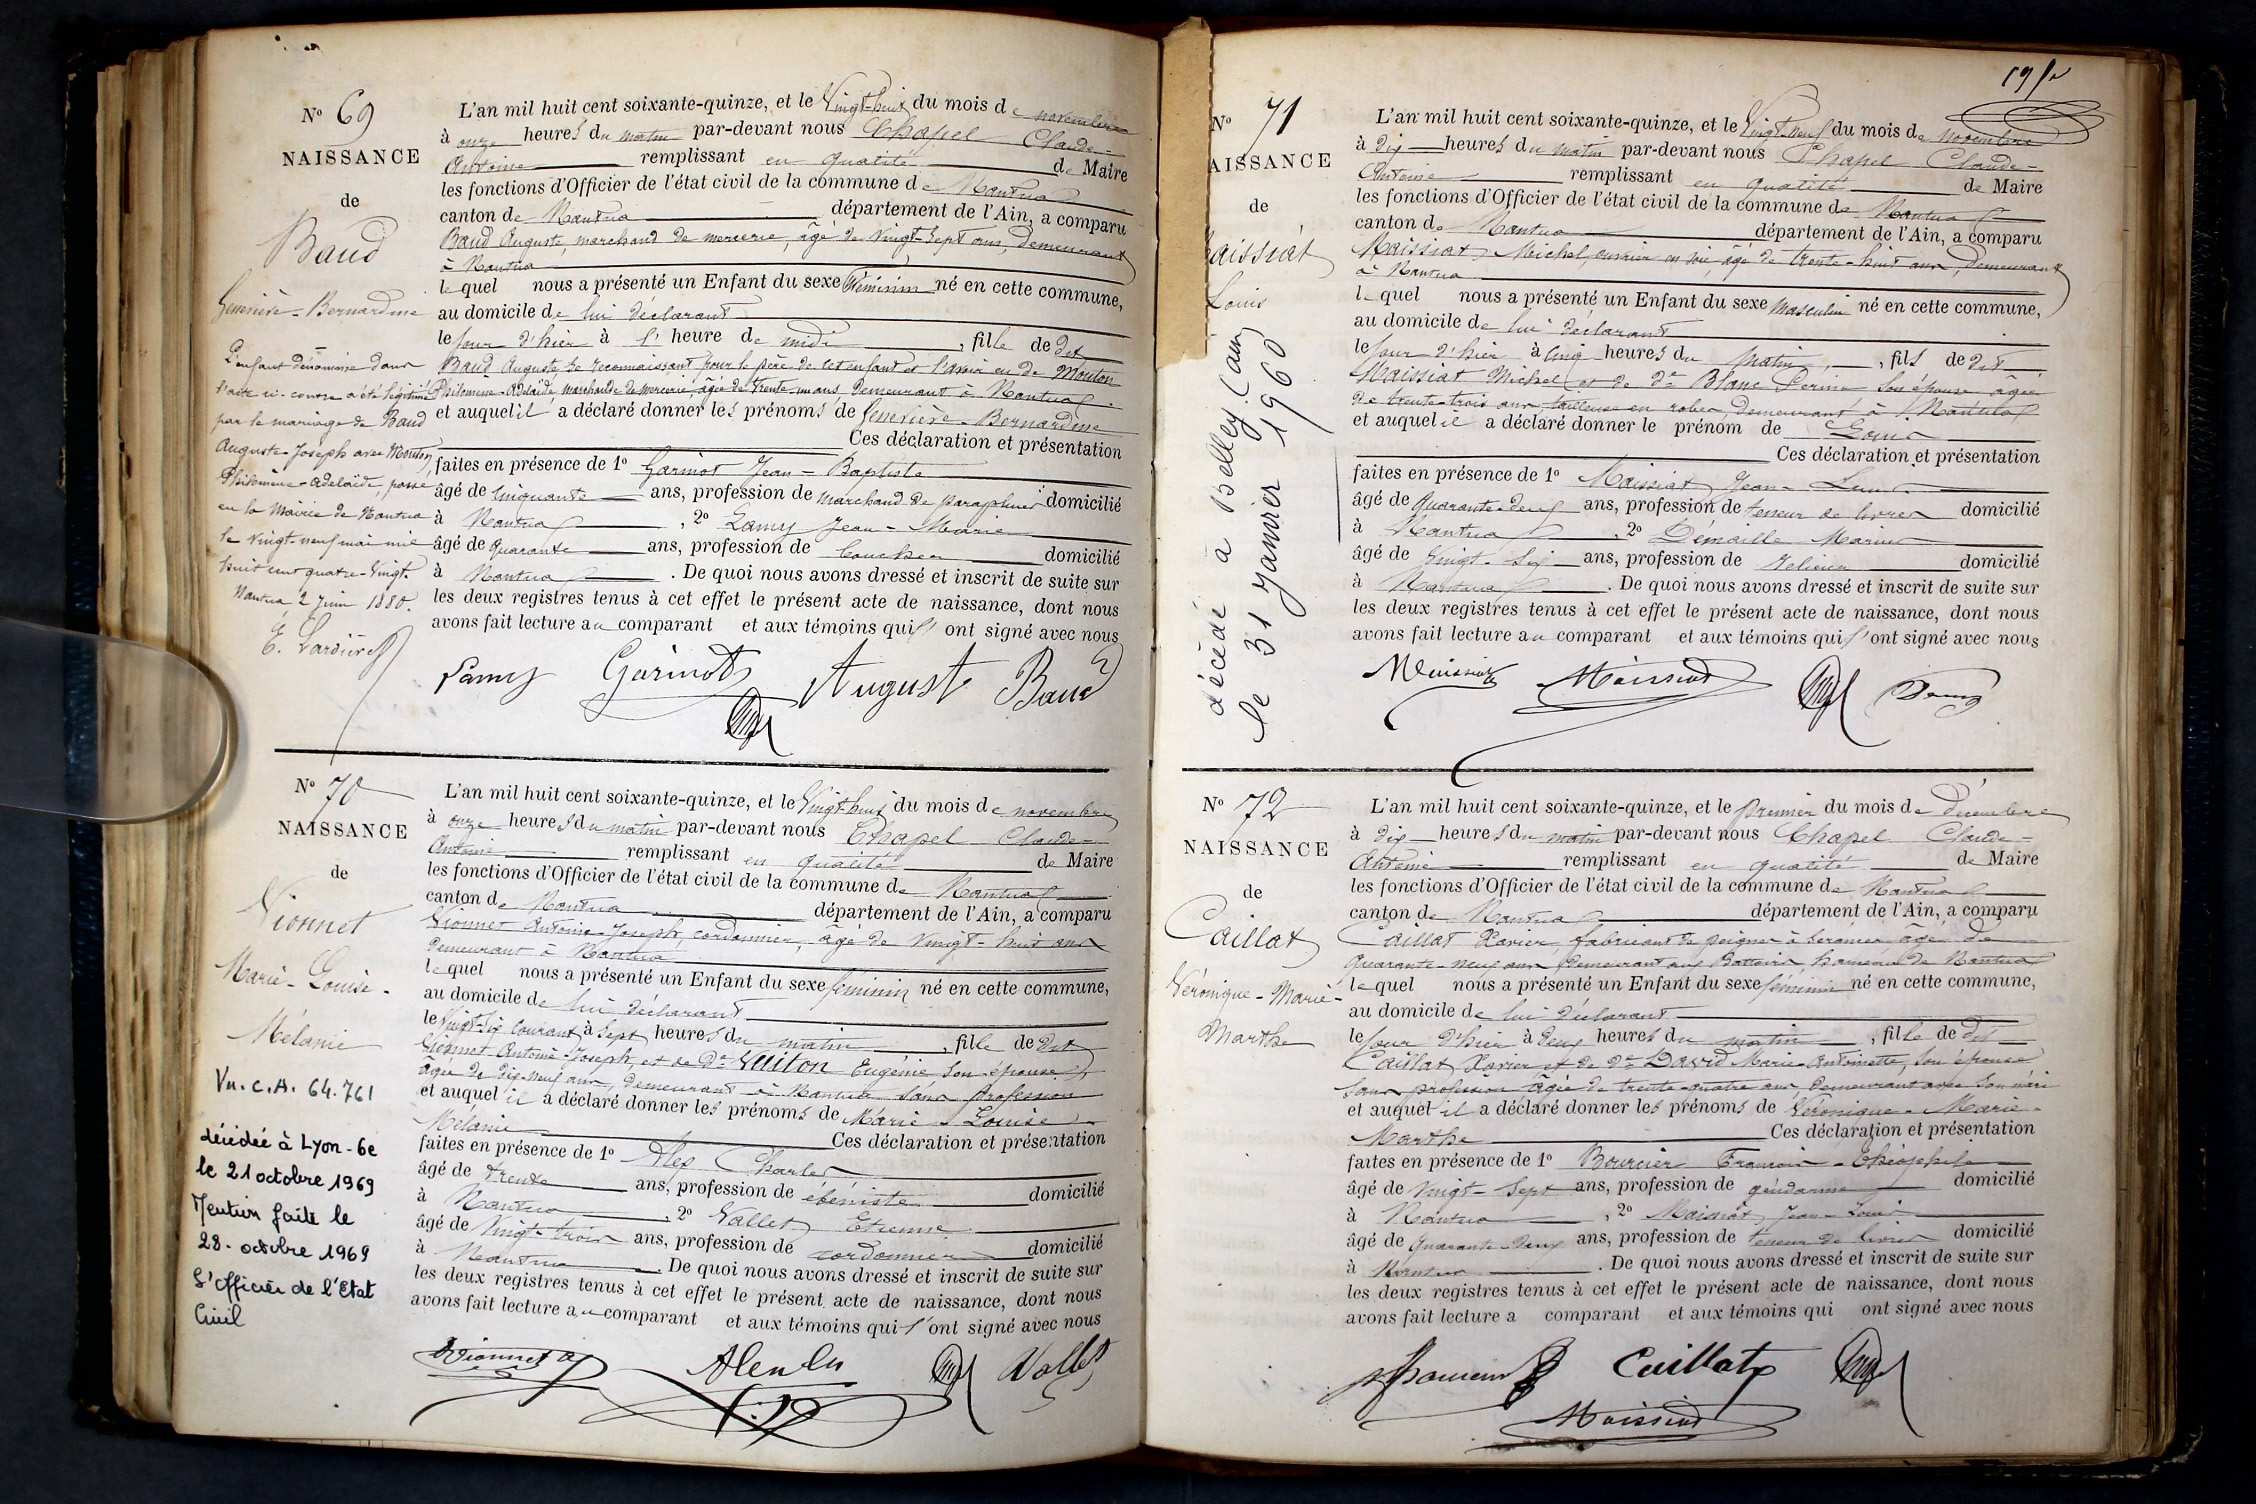 N° 69
NAISSANCE
de
Baud
Geneviève-Bernardine
L'enfant dénommé dans
l'acte ci-contre a été légitimé
par le mariage de Baud
Auguste-Joseph avec Mouton
Philomène-Adelaïde, passé
en la Mairie de Nantua
le vingt-neuf mai mil
huit cent quatre-vingt.
Nantua, 2 Juin 1880.
L'an mil huit cent soixante-quinze, et le Vingt-huit du mois de novembre
à onze heures du matin par-devant nous Chapel Claude-
Antoine remplissant en qualité de Maire
les fonctions d'Officier de l'état civil de la commune de Nantua
canton de Nantua département de l'Ain, a comparu
Baud Auguste, marchand de mercerie, âgé de vingt-sept ans, demeurant
à Nantua
lequel nous a présenté un Enfant du sexe féminin né en cette commune,
au domicile de lui déclarant
le jour d'hier à l' heure de midi, fille de dit
Baud Auguste se reconnaissant pour le père de cet enfant et de Mouton
Philomène-Adelaïde, marchande de mercerie, âgée de trente-un ans, demeurant à Nantua
et auquel il a déclaré donner les prénoms de Geneviève-Bernardine
Ces déclaration et présentation
faites en présence de 1° Garinot Jean-Baptiste
âgé de cinquante ans, profession de marchand de parapluies domicilié
à Nantua, 2° Lamy Jean-Marie
âgé de quarante ans, profession de domicilié
à Nantua. De quoi nous avons dressé et inscrit de suite sur
les deux registres tenus à cet effet le présent acte de naissance, dont nous
avons fait lecture au comparant et aux témoins qui l' ont signé avec nous
Lamy Garinot Auguste Baud
N° 70
NAISSANCE
de
Vionnet
Marie-Louise-
Mélanie
Vu. C.A. 64.761
décédée à Lyon-6e
le 21 octobre 1969
Mention faite le
28. octobre 1969
L'officier de l'Etat
Civil
L'an mil huit cent soixante-quinze, et le Vingt-huit du mois de novembre
à onze heures du matin par-devant nous Chapel Claude-
Antoine remplissant en qualité de Maire
les fonctions d'Officier de l'état civil de la commune de Nantua
canton de Nantua département de l'Ain, a comparu
Vionnet Antoine-Joseph, cordonnier, âgé de vingt-huit ans
demeurant à Nantua
lequel nous a présenté un Enfant du sexe féminin né en cette commune,
au domicile de lui déclarant
le vingt-six courant à sept heures du matin, fille de dit
Vionnet Antoine-Joseph, et de De Vuiton Eugénie son épouse
âgée de dix-neuf ans, demeurant à Nantua sans profession
et auquel il a déclaré donner les prénoms de Marie-Louise
Mélanie Ces déclaration et présentation
faites en présence de 1° Ales Charles
âgé de trente ans, profession de ébéniste domicilié
à Nantua, 2° Vallet Etienne
âgé de vingt-trois ans, profession de cordonnier domicilié
à Nantua. De quoi nous avons dressé et inscrit de suite sur
les deux registres tenus à cet effet le présent acte de naissance, dont nous
avons fait lecture au comparant et aux témoins qui l'ont signé avec nous
Vionnet Vallet
N° 71
AISSANCE
de
aissiat
Louis
décédé à Belley (Ain)
le 31 janvier 1960
L'an mil huit cent soixante-quinze, et le Vingt-neuf du mois de novembre
à dix heures du matin par-devant nous Chapel Claude-
Antoine remplissant en qualité de Maire
les fonctions d'Officier de l'état civil de la commune de Nantua
canton de Nantua département de l'Ain, a comparu
Maissiat Michel, ouvrier en soie, âgé de trente-huit ans, demeurant
à Nantua
lequel nous a présenté un Enfant du sexe masculin né en cette commune,
au domicile de lui déclarant
le jour d'hier à cinq heures du matin, fils de dit
Maissiat Michel et de De Blanc Périne son épouse, âgée
de trente-trois ans, tailleuse en robes, demeurant à Nantua
et auquel il a déclaré donner le prénom de Louis
Ces déclaration et présentation
faites en présence de 1° Maissiat Jean-Louis
âgé de quarante-deux ans, profession de teneur de livres domicilié
à Nantua, 2° Démaille Marius
âgé de vingt-six ans, profession de relieur domicilié
à Nantua. De quoi nous avons dressé et inscrit de suite sur
les deux registres tenus à cet effet le présent acte de naissance, dont nous
avons fait lecture au comparant et aux témoins qui l'ont signé avec nous
Maissiat Maissiat
N° 72
NAISSANCE
de
Caillat
Véronique-Marie-
Marthe
L'an mil huit cent soixante-quinze, et le premier du mois de Décembre
à dix heures du matin par-devant nous Chapel Claude-
Antoine remplissant en qualité de Maire
les fonctions d'Officier de l'état civil de la commune de Nantua
canton de Nantua département de l'Ain, a comparu
Caillat Xavier, fabricant de peignes à sérancer âgé de
quarante-neuf ans demeurant aux Battoirs hameau de Nantua
lequel nous a présenté un Enfant du sexe féminin né en cette commune,
au domicile de lui déclarant
le jour d'hier à deux heures du matin, fille de dit
Caillat Xavier et de De David Marie-Antoinette, son épouse
sans profession âgée de trente-quatre ans, demeurant avec son mari
et auquel il a déclaré donner les prénoms de Véronique-Marie-
Marthe Ces déclaration et présentation
faites en présence de 1° Bourcier François-Théophile
âgé de vingt-sept ans, profession de gendarme domicilié
à Nantua, 2° Maissiat Jean-Louis
âgé de quarante-deux ans, profession de teneur de livres domicilié
à Nantua. De quoi nous avons dressé et inscrit de suite sur
les deux registres tenus à cet effet le présent acte de naissance, dont nous
avons fait lecture a comparant et aux témoins qui ont signé avec nous
Caillat
Maissiat